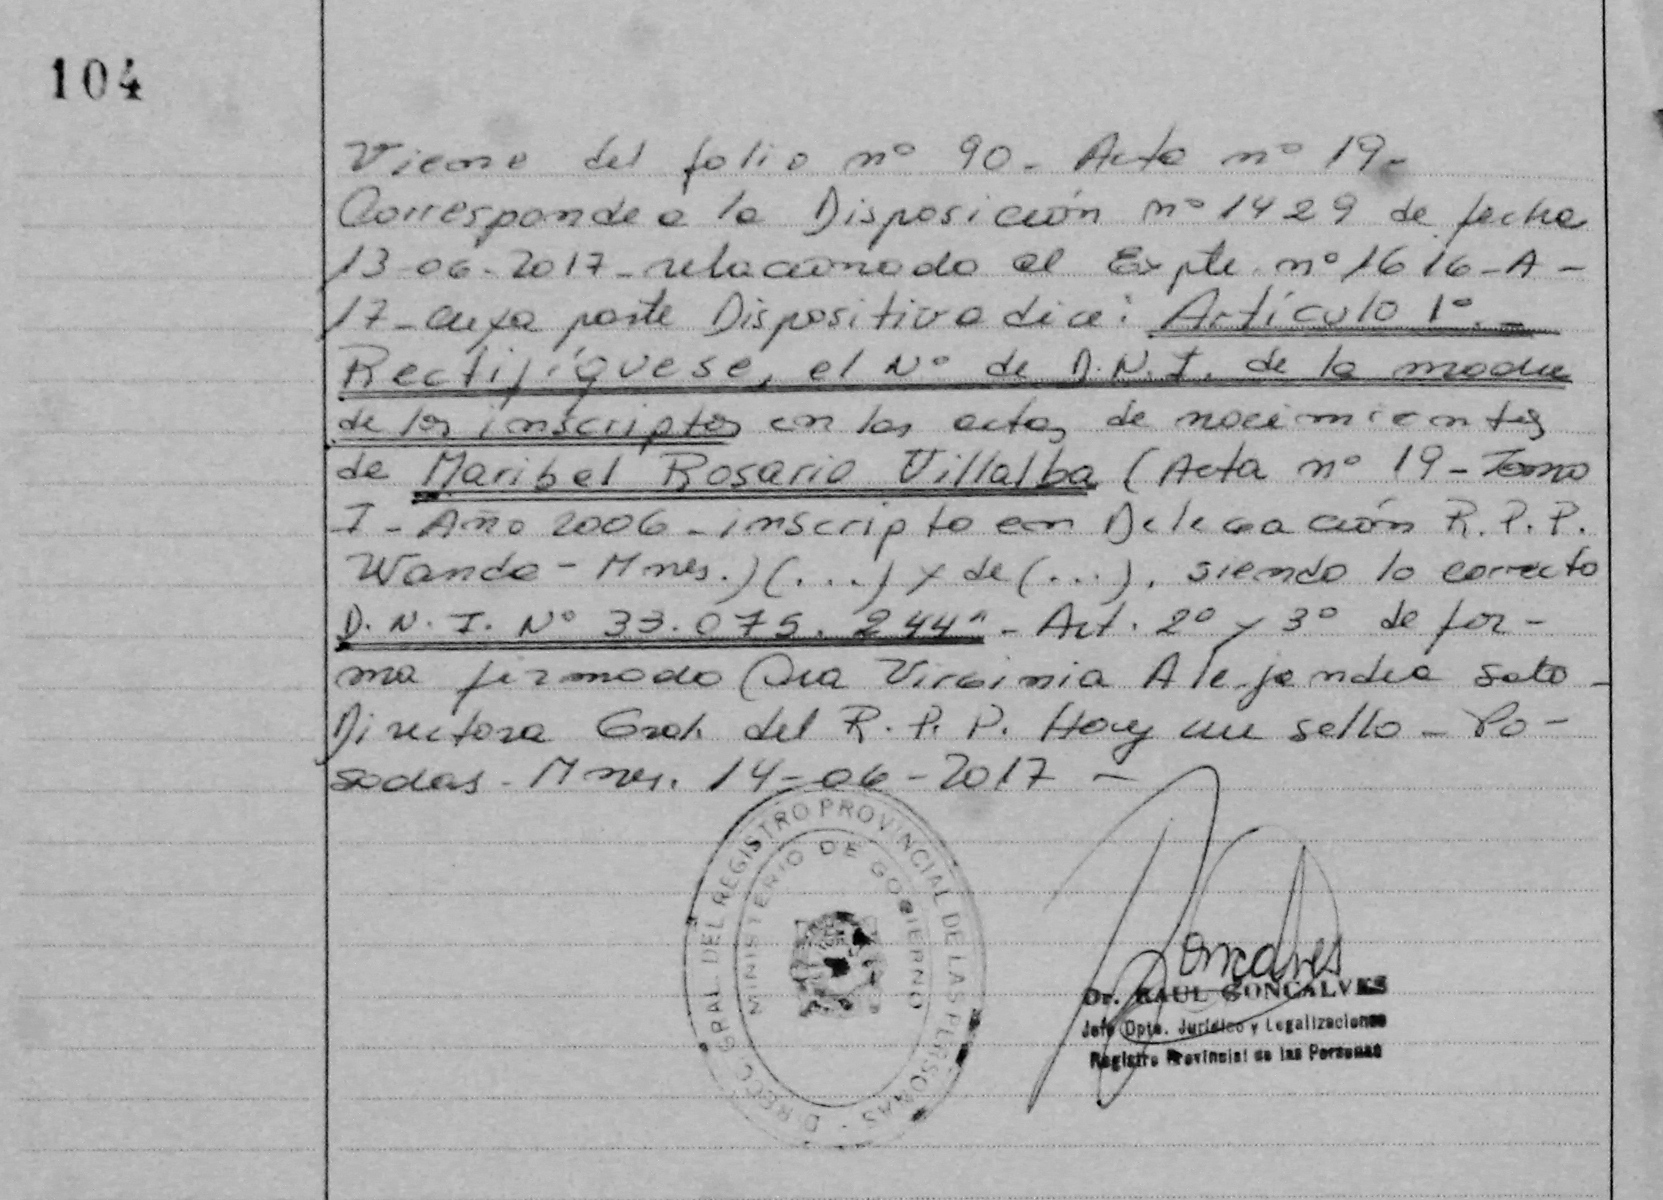 104
Viene del folio nº 90_ Acta nº 19-
Corresponde a la Disposición nº 1429 de fecha
13-06-2017_relacionado al Expte. nº 1616_A_
17_cuya parte Dispositiva dice: Artículo 1º._
Rectifíquese, el Nº de D.N.I. de la madre
de los inscriptos en las actas de nacimientos
de Maribel Rosario Villalba (Acta nº 19_Tomo
I_Año 2006_inscripta en Delegación R.P.P.
Wanda - Mnes.) (...) y de (...), siendo lo correcto
D.N.I. Nº 33.075.244"_ Art. 2º y 3º de for-
ma firmado Dra Virginia Alejandra Soto_
Directora Gral. del R.P.P. Hay un sello_ Po-
sadas. Mnes. 14-06-2017 -
DIRECC. GRAL. DEL REGISTRO PROVINCIAL DE LAS PERSONAS
MINISTERIO DE GOBIERNO
Dr. RAUL GONCALVES
Jefe Dpto. Jurídico y Legalizaciones
Registro Provincial de las Personas